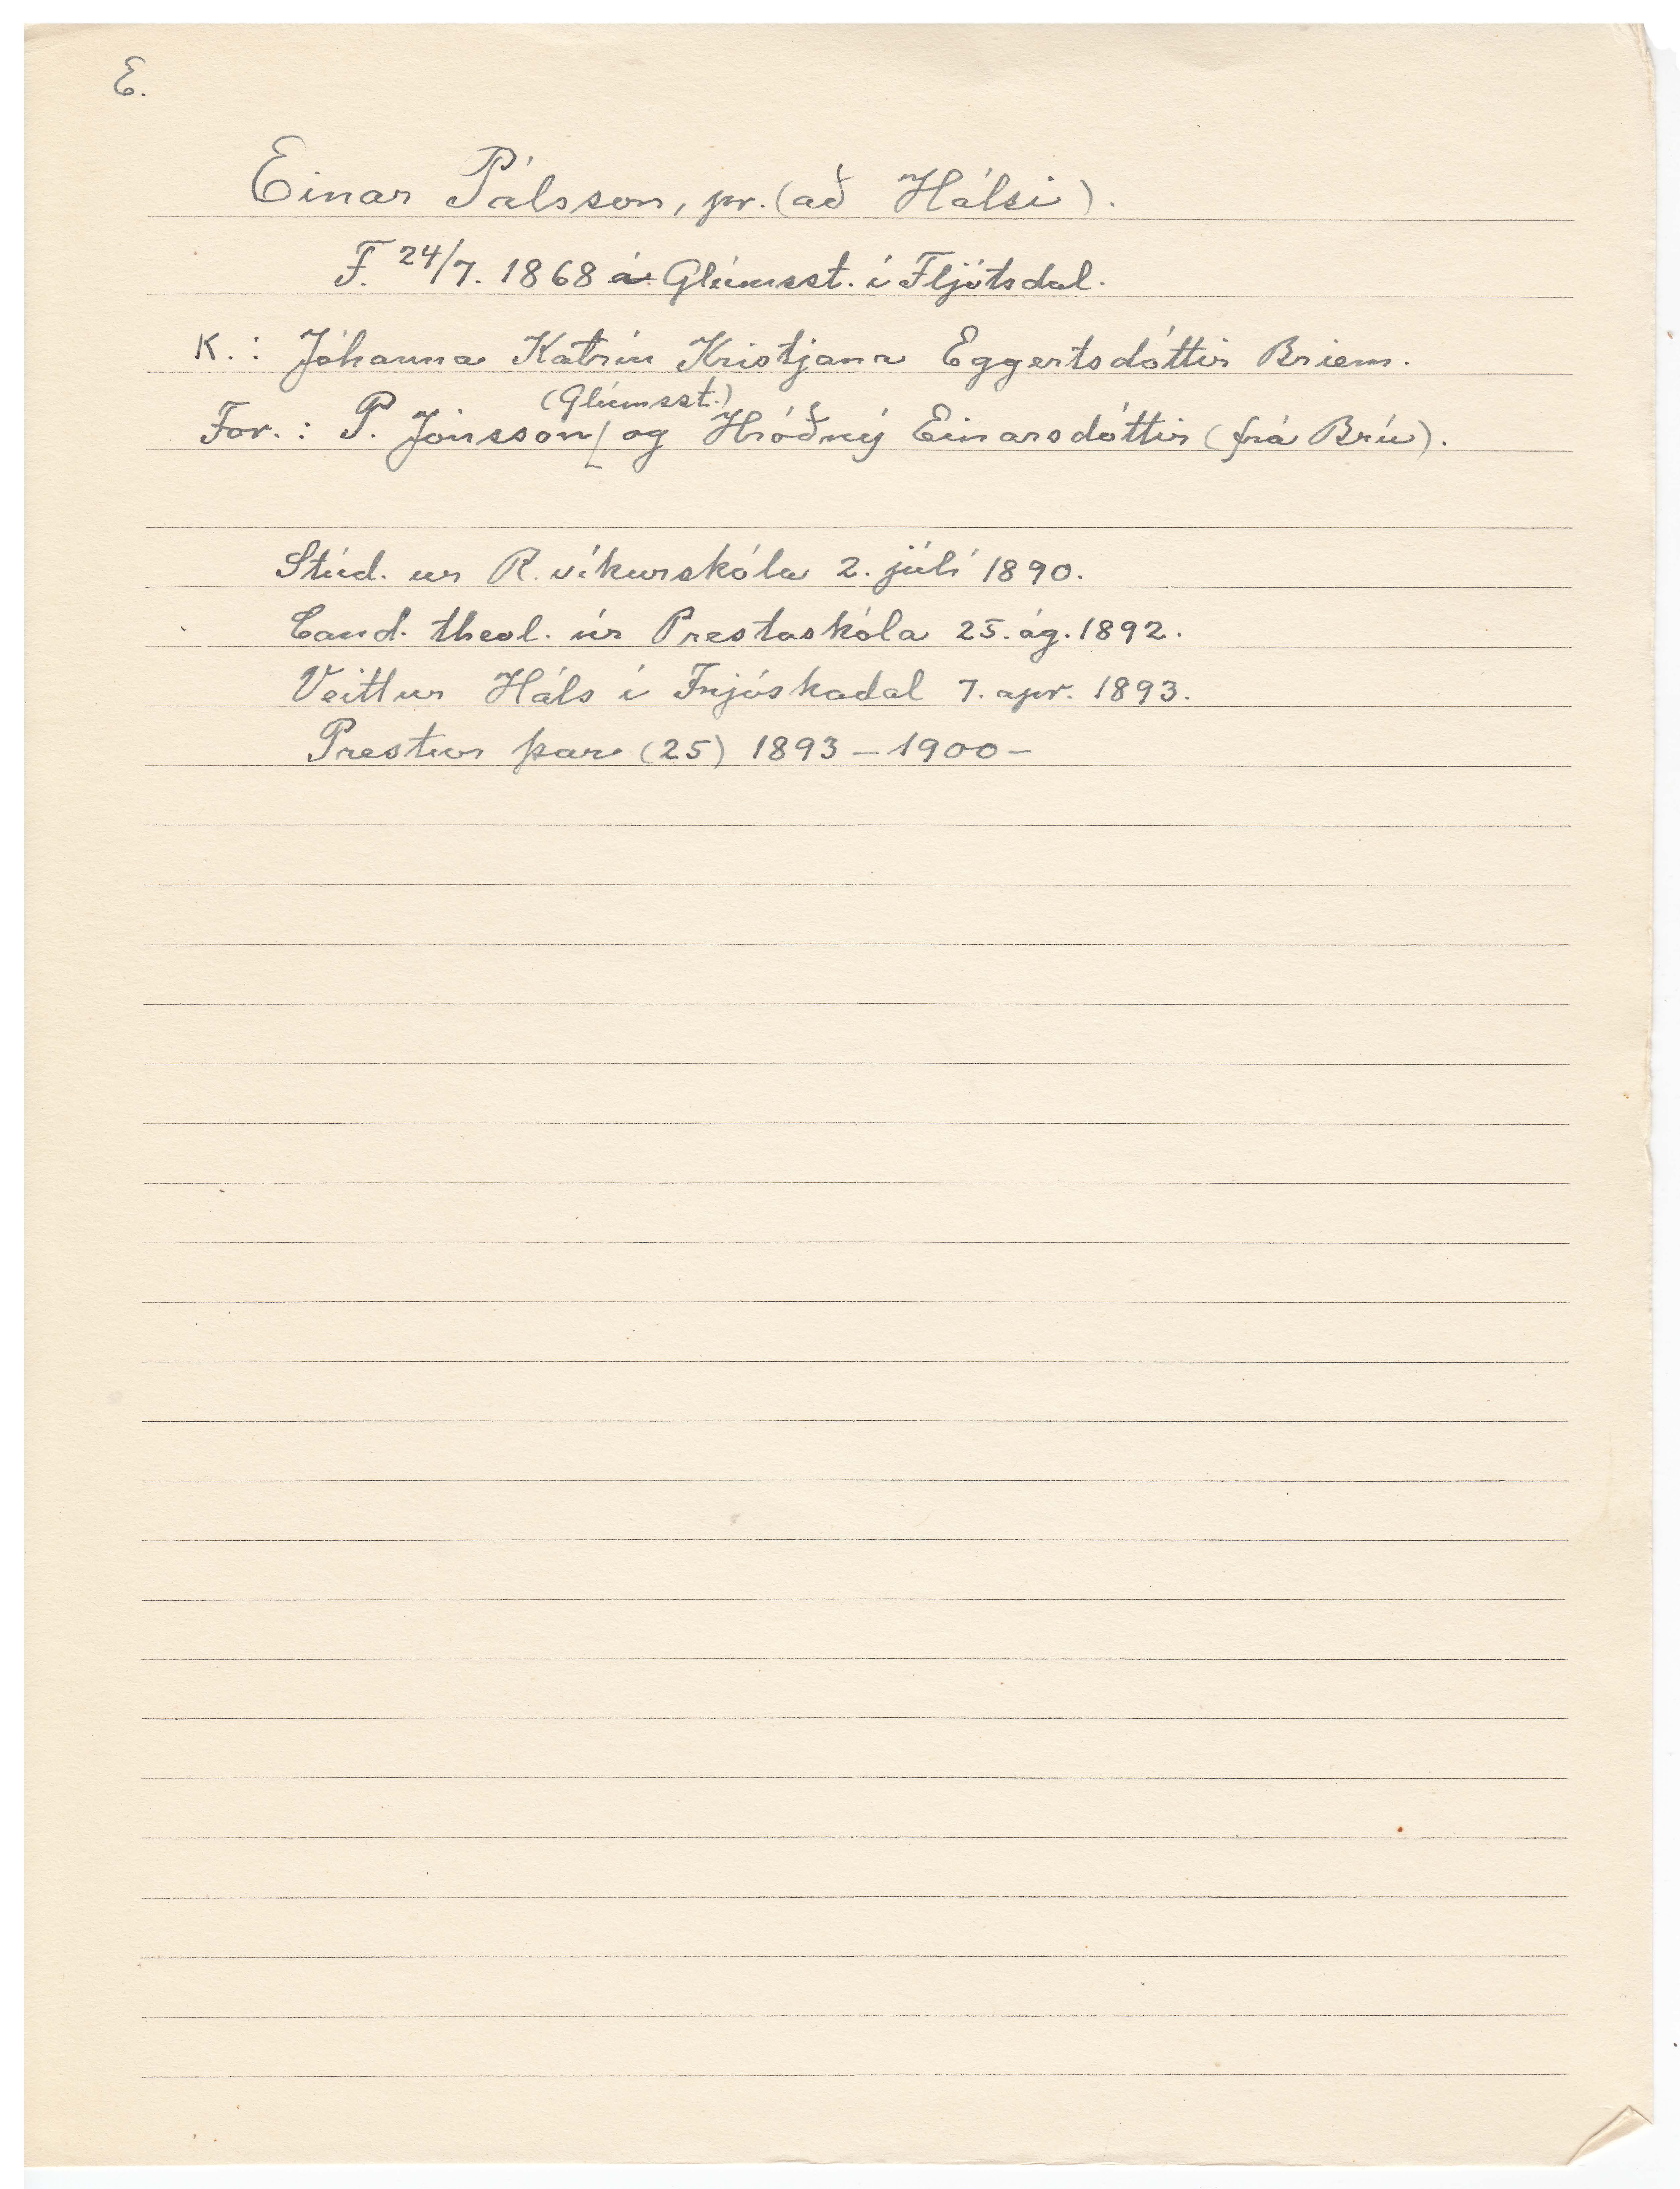 E.
Einar Pálsson, pr. (að Hálsi).
F. 24/7. 1868 á Glúmsst. í Fljótsdal.
K.: Jóhanna Katrín Kristjana Eggertsdóttir Briem.
(Glúmsst.)
For.: P. Jónsson/ og Hróðný Einarsdóttir (frá Brú).
Stúd. ur R.víkurskóla 2. júlí 1890.
Cand. theol. úr Prestaskóla 25. ág. 1892.
Veittur Háls í Fnjóskadal 7. apr. 1893.
Prestur þar (25) 1893 – 1900 –